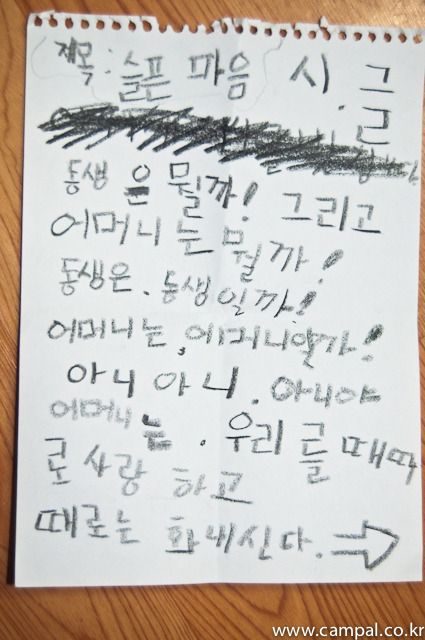 제목: 슬픈 마음 시. 글
동생은 뭘까! 그리고
어머니는 뭘까!
동생은. 동생일까!
어머니는, 어머니일까!
아니 아니. 아니야
어머니는. 우리를 때따
로 사랑 하고
때로는 화내신다.
www.campal.co.kr